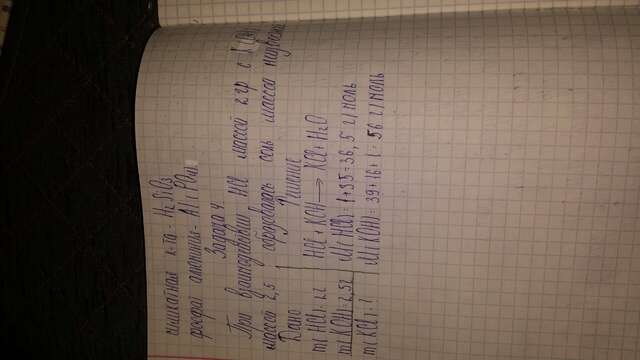 силикатная к-та - H2SiO3
фосфат алюминия - Al(PO4)
Задача 4.
При взаимодействии HCl массой 2 гр с K(OH)
массой 2,5 образовалась соль масса неизвестна
Дано Решение
m(HCl)= 2г HCl + KOH → KCl + H2O
m(KOH)= 2,5г M(HCl)= 1+35=36,5 г/моль
m(KCl)- ? M(KOH)= 39+16+1= 56 г/моль